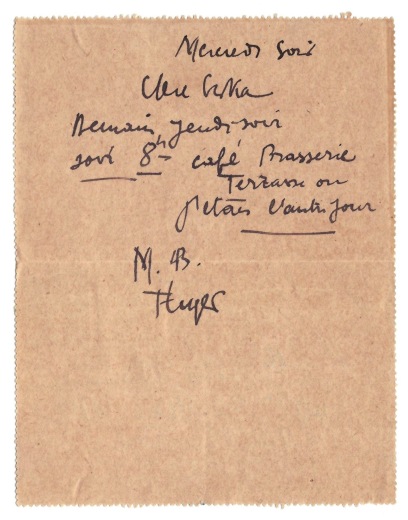 Mercredi Soir
Demain jeudi soir
soir 8h café Brasserie
Terrasse ou
j'étais l'autre jour
M. B.